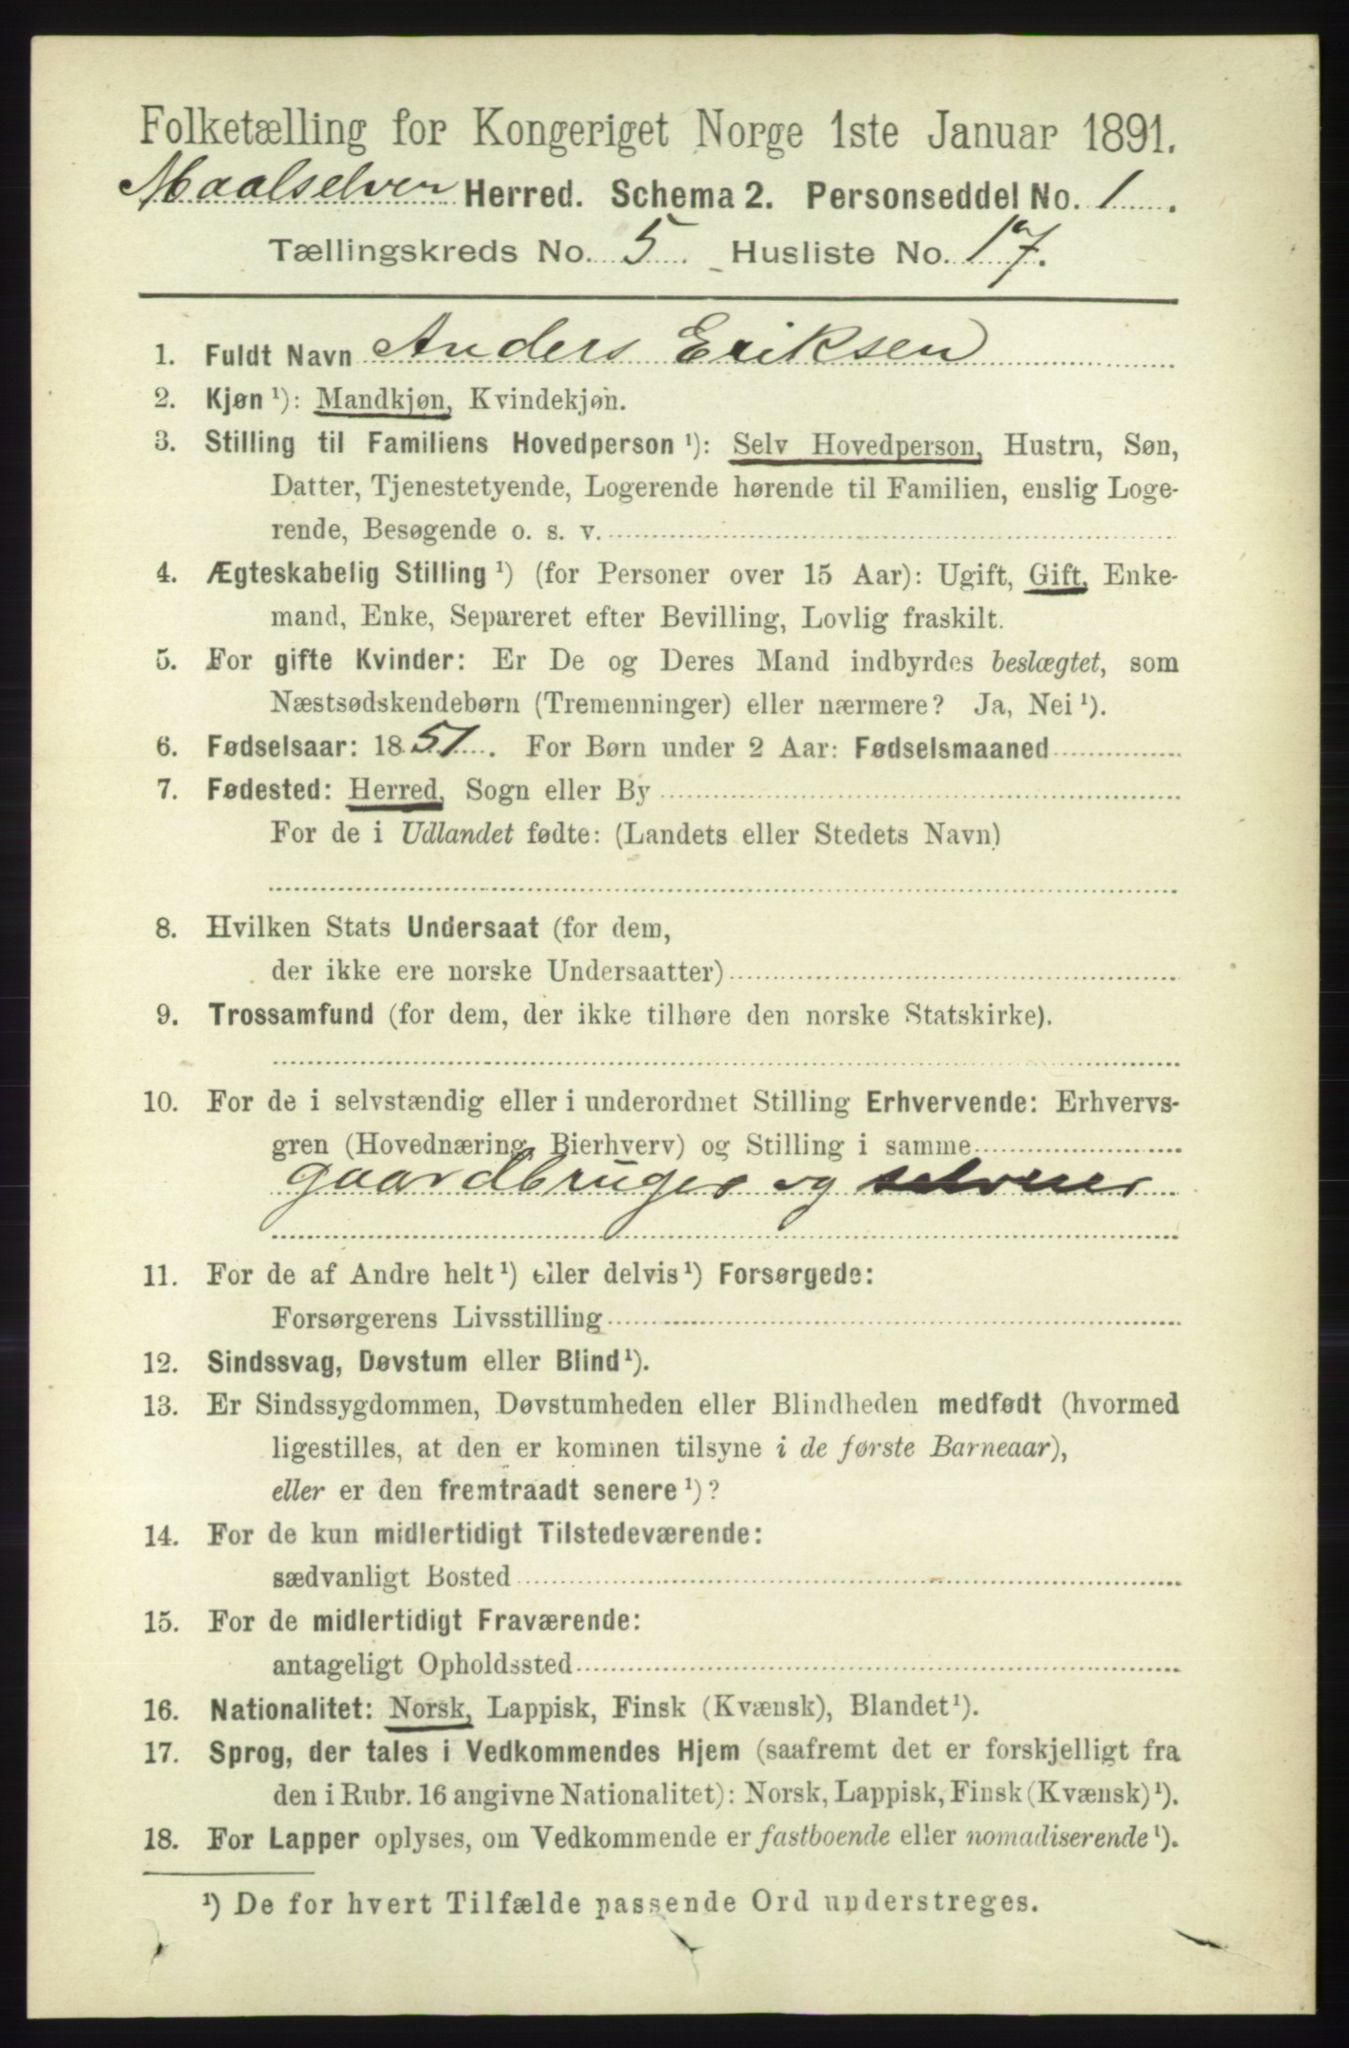 Folketælling for Kongeriget Norge 1ste Januar 1891.
Maalselven Herred. Schema 2. Personseddel No. 1.
Tællingskreds No. 5. Husliste No. 17.
1. Fuldt Navn Anders Eriksen
2. Kjøn ¹): Mandkjøn, Kvindekjøn.
3. Stilling til Familiens Hovedperson ¹): Selv Hovedperson, Hustru, Søn,
Datter, Tjenestetyende, Logerende hørende til Familien, enslig Loge-
rende, Besøgende o. s. v.
4. Ægteskabelig Stilling ¹) (for Personer over 15 Aar): Ugift, Gift, Enke-
mand, Enke, Separeret efter Bevilling, Lovlig fraskilt.
5. For gifte Kvinder: Er De og Deres Mand indbyrdes beslægtet, som
Næstsødskendebørn (Tremenninger) eller nærmere? Ja, Nei ¹).
6. Fødselsaar: 1851. For Børn under 2 Aar: Fødselsmaaned
7. Fødested: Herred, Sogn eller By
For de i Udlandet fødte: (Landets eller Stedets Navn)
8. Hvilken Stats Undersaat (for dem,
der ikke ere norske Undersaatter)
9. Trossamfund (for dem, der ikke tilhøre den norske Statskirke).
10. For de i selvstændig eller i underordnet Stilling Erhvervende: Erhvervs-
gren (Hovednæring, Bierhverv) og Stilling i samme
gaardbruger og selveier
11. For de af Andre helt ¹) eller delvis ¹) Forsørgede:
Forsørgerens Livsstilling
12. Sindssvag, Døvstum eller Blind ¹).
13. Er Sindssygdommen, Døvstumheden eller Blindheden medfødt (hvormed
ligestilles, at den er kommen tilsyne i de første Barneaar),
eller er den fremtraadt senere ¹)?
14. For de kun midlertidigt Tilstedeværende:
sædvanligt Bosted
15. For de midlertidigt Fraværende:
antageligt Opholdssted
16. Nationalitet: Norsk, Lappisk, Finsk (Kvænsk), Blandet ¹).
17. Sprog, der tales i Vedkommendes Hjem (saafremt det er forskjelligt fra
den i Rubr. 16 angivne Nationalitet): Norsk, Lappisk, Finsk (Kvænsk) ¹).
18. For Lapper oplyses, om Vedkommende er fastboende eller nomadiserende ¹).
¹) De for hvert Tilfælde passende Ord understreges.